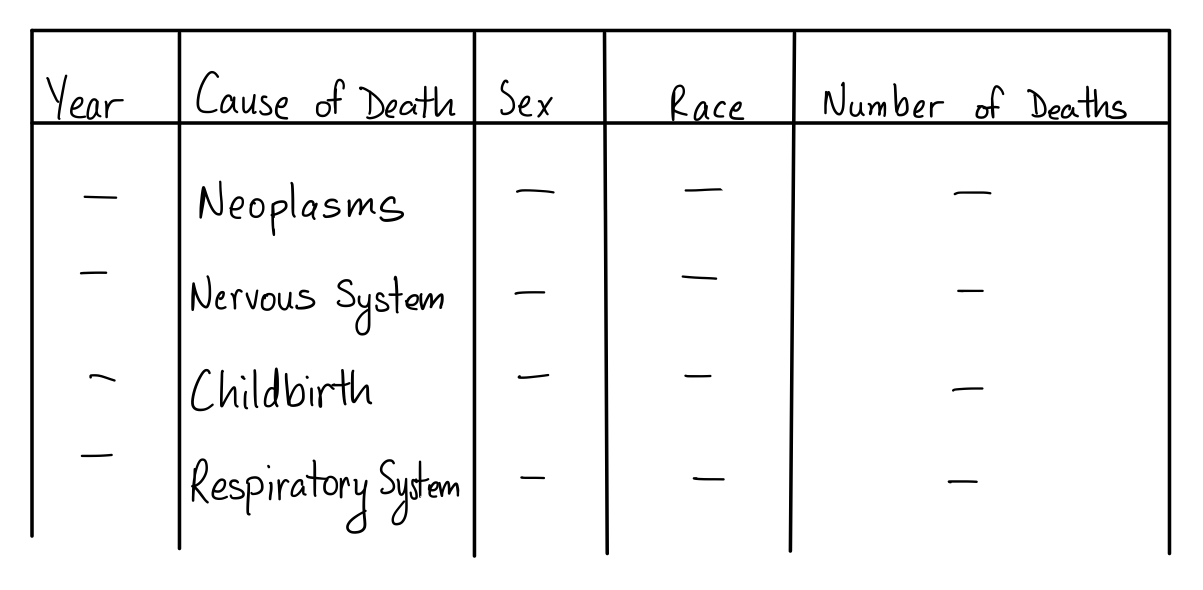 Year Cause of Death Sex Race Number of Deaths
— Neoplasms — — —
— Nervous System — — —
— Childbirth — — —
— Respiratory System — — —